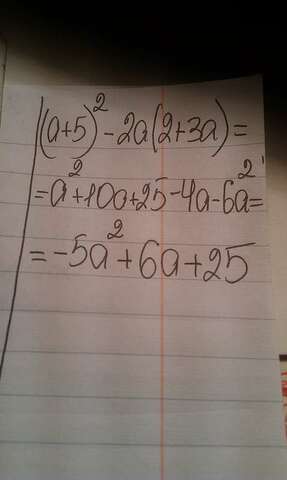 (a+5)²-2a(2+3a)=
=a²+10a+25-4a-6a²=
=-5a²+6a+25